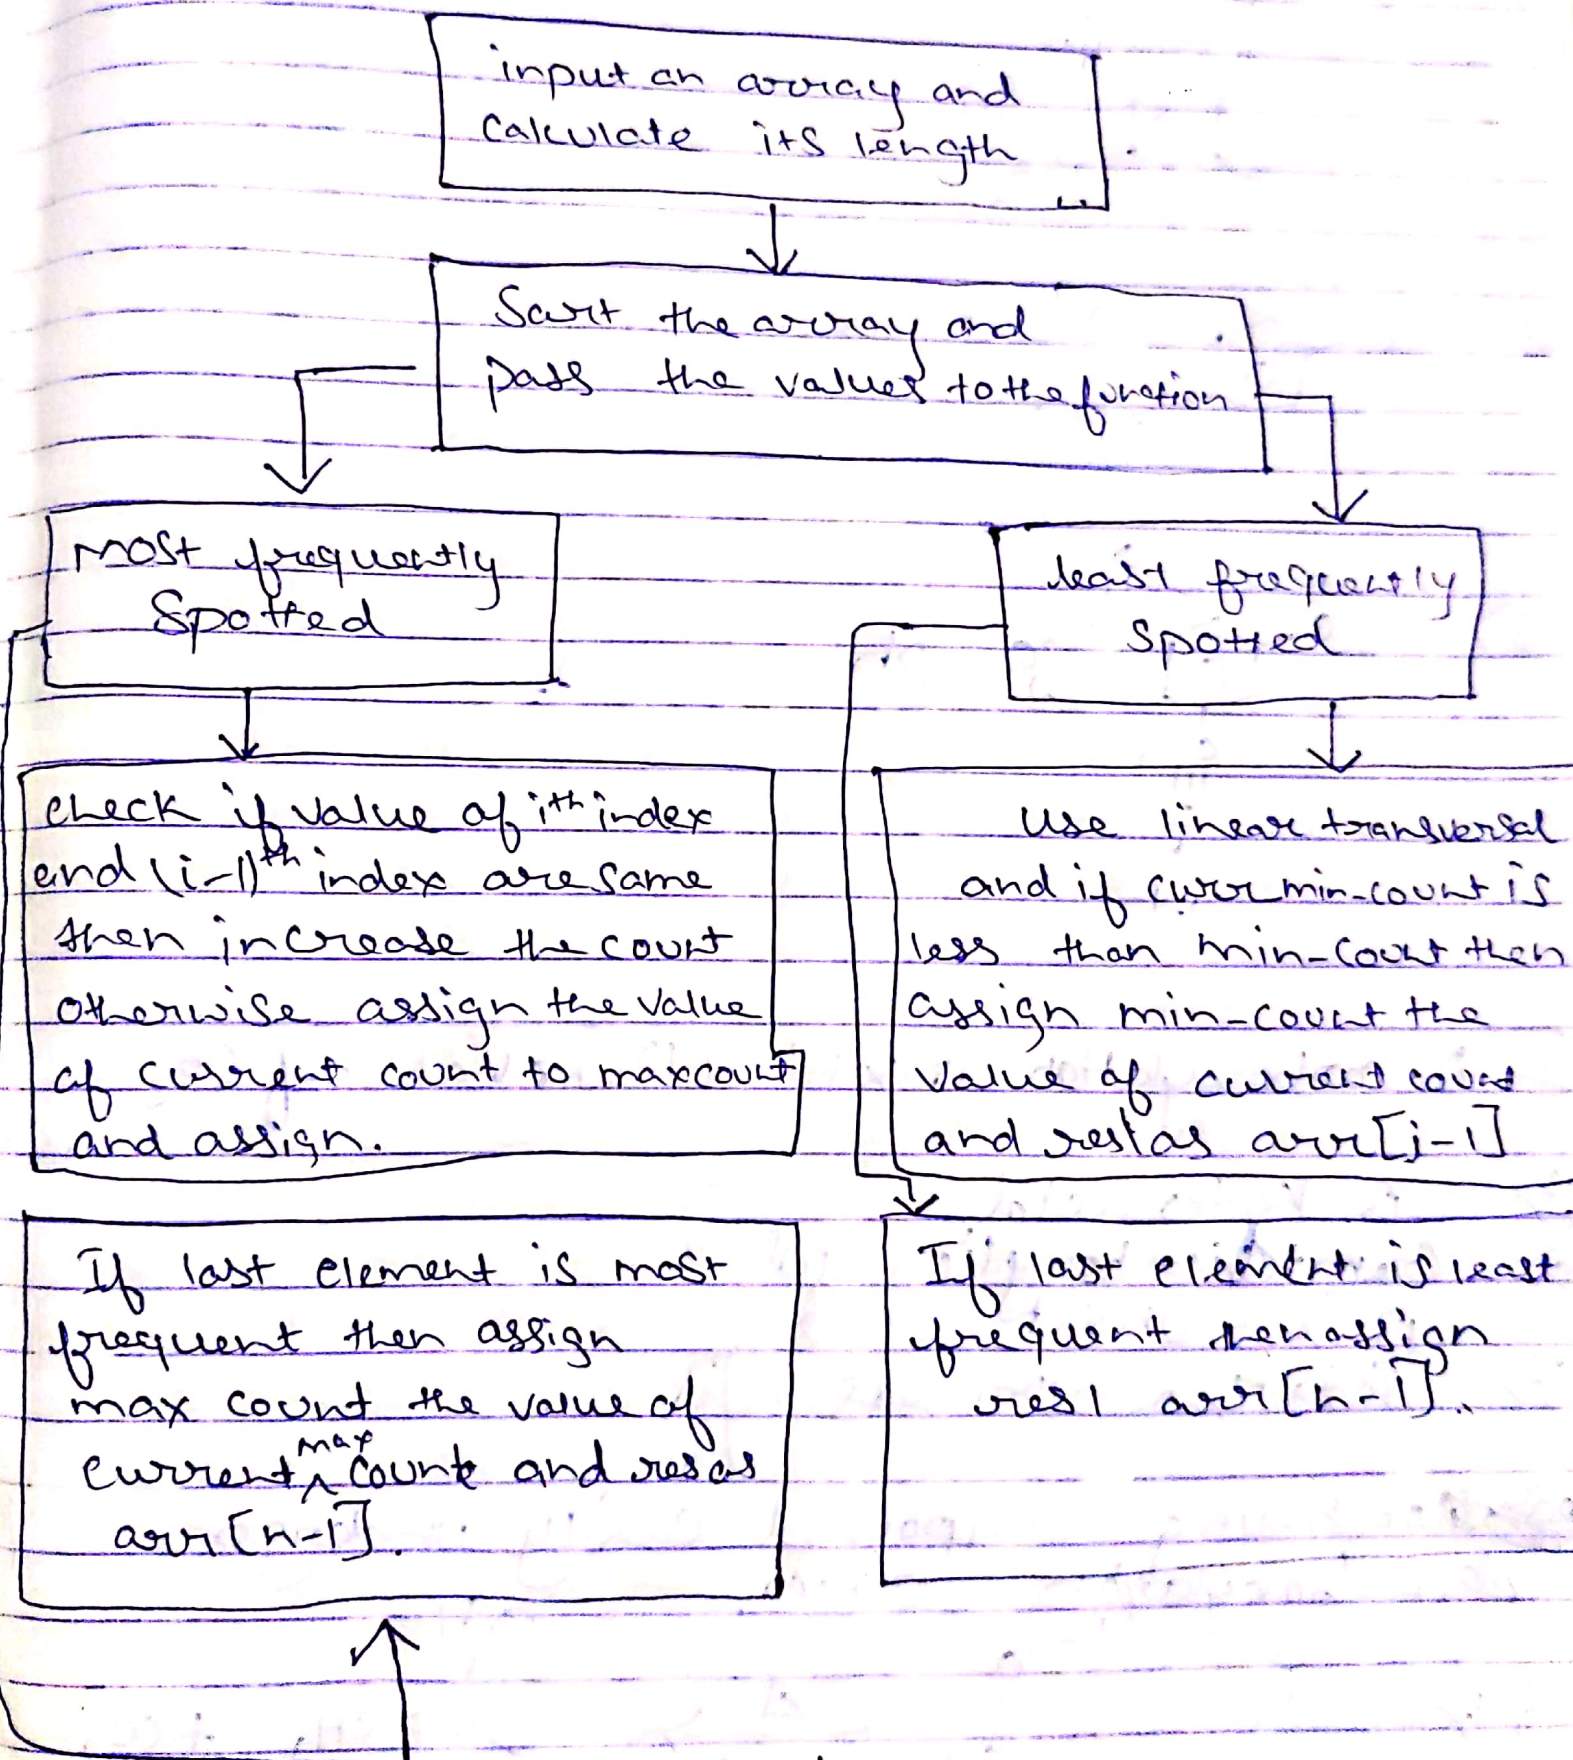 input an array and
calculate its length
Sort the array and
pass the values to the function
most frequently
Spotted
least frequently
Spotted
check if value of ith index
and (i-1)th index are same
then increase the count
otherwise assign the value
of current count to maxcount
and assign.
Use linear transversal
and if curr min-count is
less than min-count then
assign min-count the
value of current count
and res1 as arr[j-1]
If last element is most
frequent then assign
max count the value of
current max count and res as
arr[n-1].
If last element is least
frequent then assign
res1 arr[n-1].